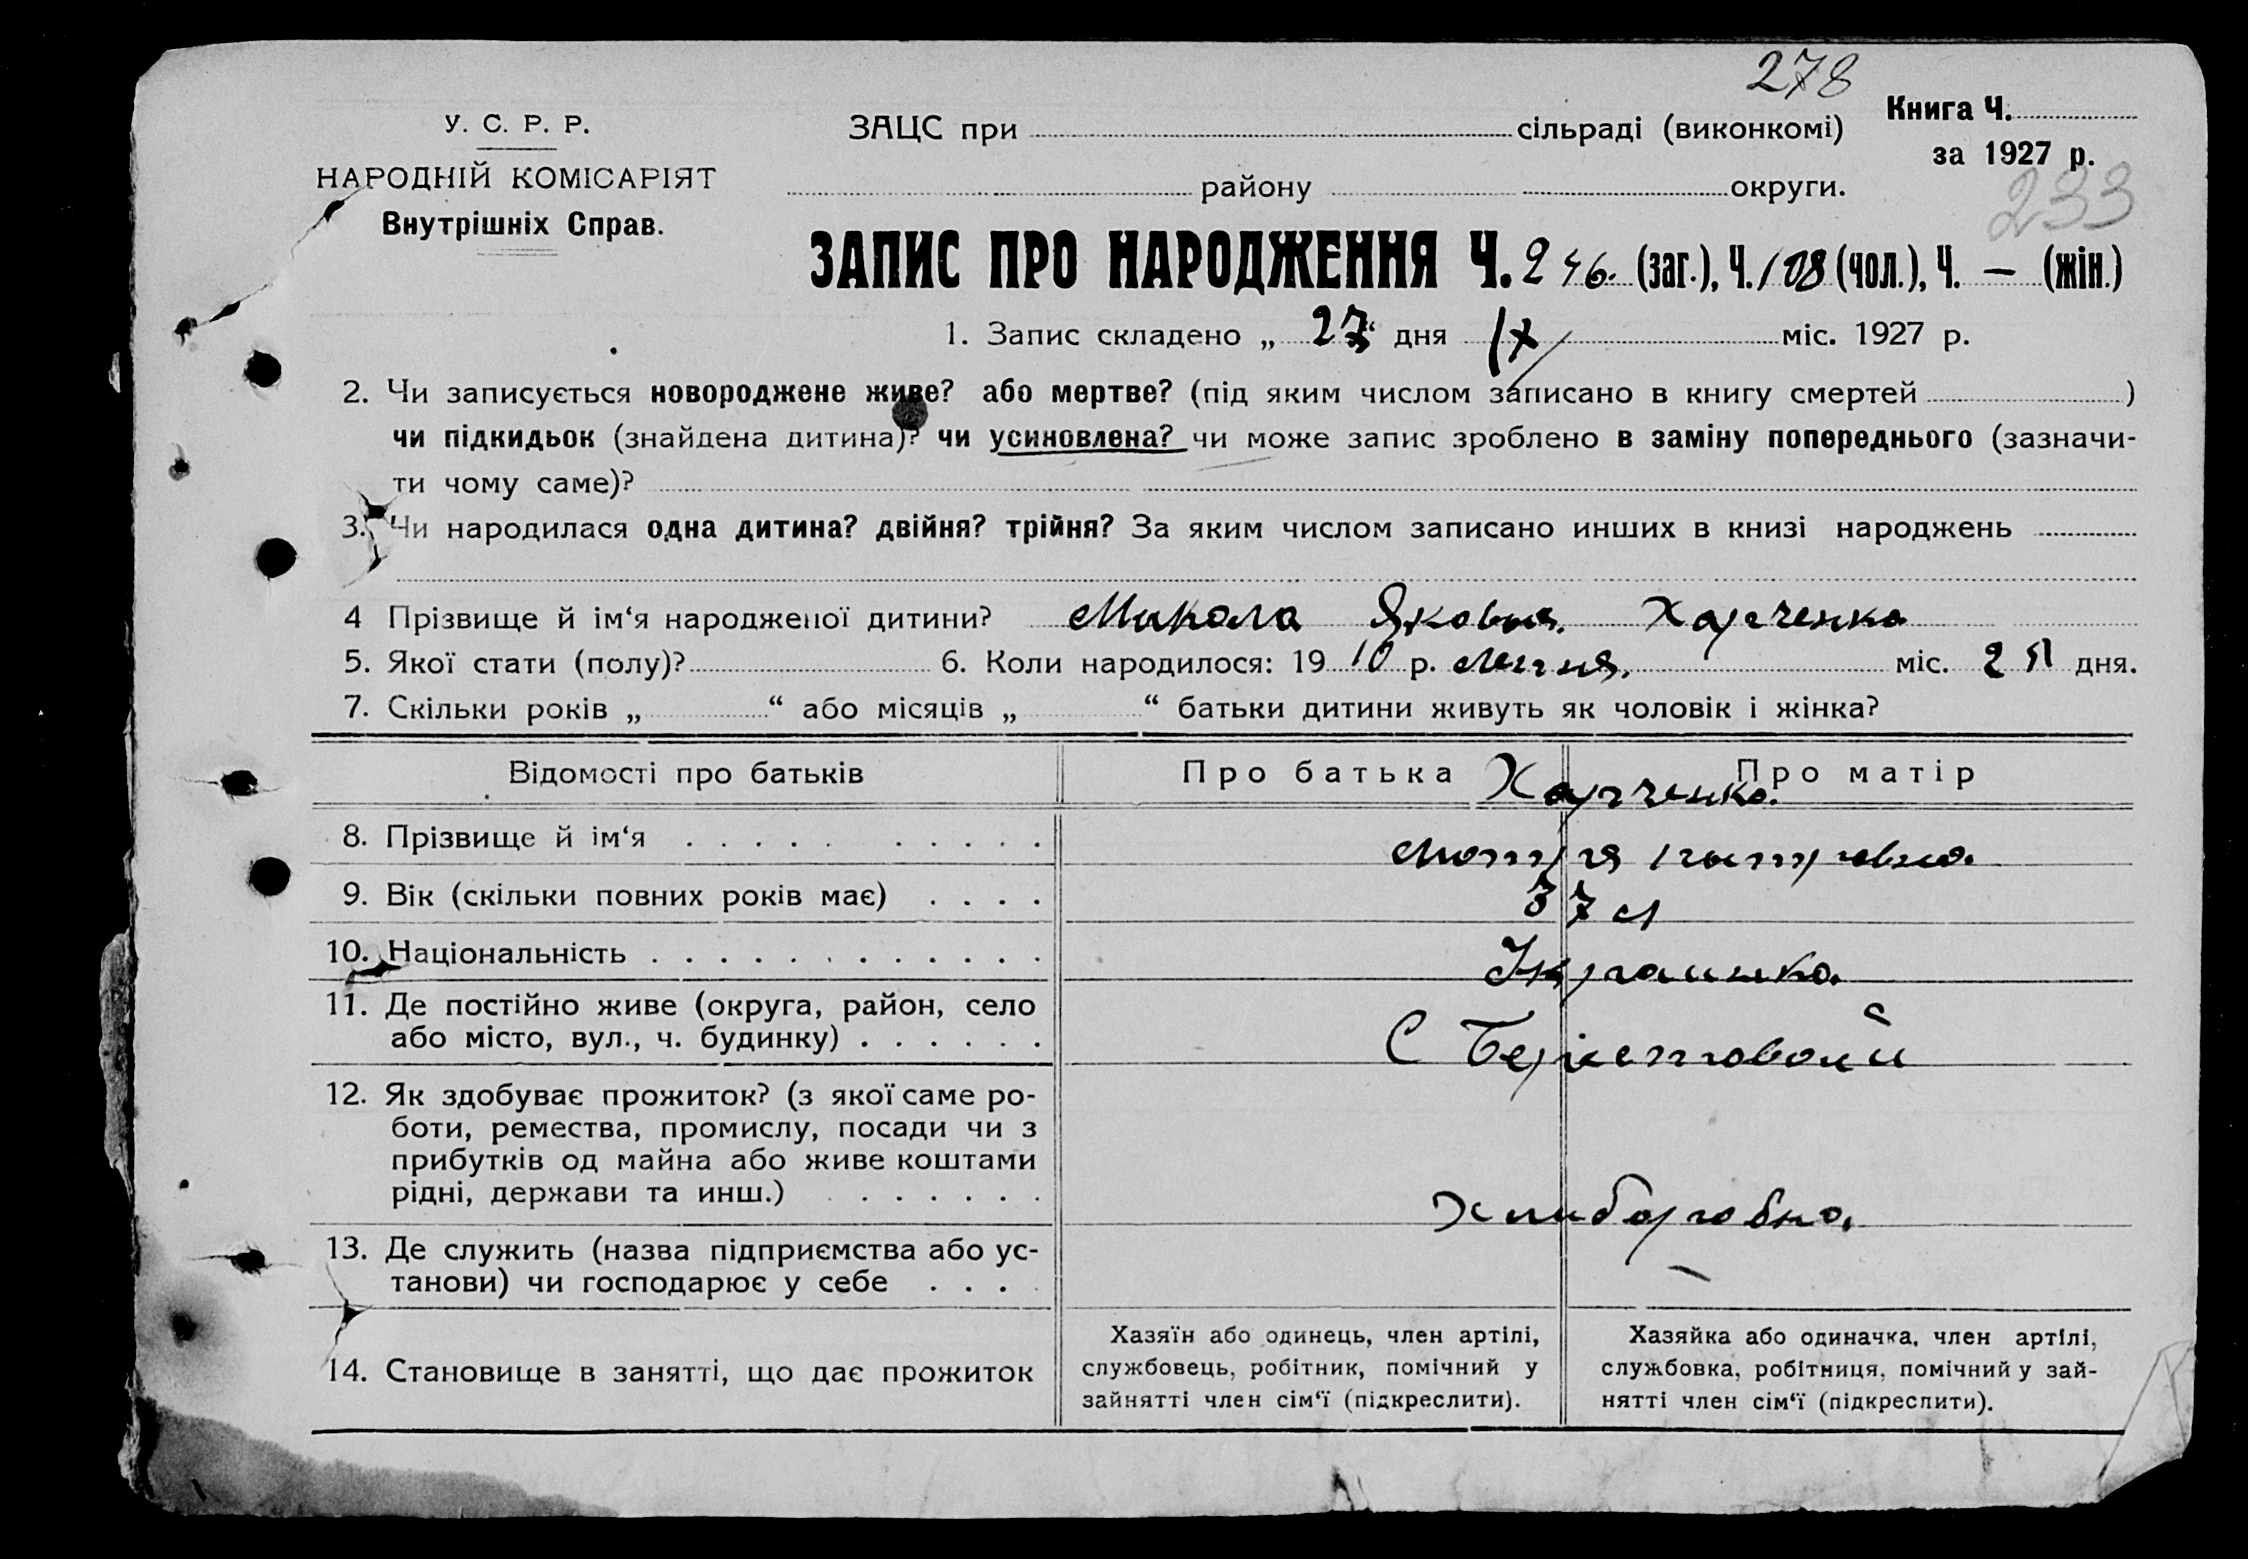 278
У. С. Р. Р.
НАРОДНІЙ КОМІСАРІЯТ
Внутрішніх Справ.
ЗАЦС при сільраді (виконкомі)
Книга Ч.
за 1927 р.
району округи.
233
ЗАПИС ПРО НАРОДЖЕННЯ Ч. 246. (заг.), Ч. 108 (чол.), Ч. — (жін.)
1. Запис складено „ 27 “ дня IX міс. 1927 р.
2. Чи записується новороджене живе? або мертве? (під яким числом записано в книгу смертей )
чи підкидьок (знайдена дитина)? чи усиновлена? чи може запис зроблено в заміну попереднього (зазначи-
ти чому саме)?
3. Чи народилася одна дитина? двійня? трійня? За яким числом записано инших в книзі народжень
4 Прізвище й ім‘я народженої дитини? Микола Яковыч. Харченко
5. Якої стати (полу)? 6. Коли народилося: 19 10 р. міс. дня.
7. Скільки років „ “ або місяців „ “ батьки дитини живуть як чоловік і жінка?
Відомості про батьків Про батька Про матір
Харченко.
8. Прізвище й ім‘я . . . . . . . . . . Мотря
9. Вік (скільки повних років має) . . . . 37 л
10. Національність . . . . . . . . . . . . . Украинка.
11. Де постійно живе (округа, район, село
або місто, вул., ч. будинку) . . . . . . С Берестовомй
12. Як здобуває прожиток? (з якої саме ро-
боти, ремества, промислу, посади чи з
прибутків од майна або живе коштами
рідні, держави та инш.) . . . . . . . Хлиборобна.
13. Де служить (назва підприємства або ус-
танови) чи господарює у себе . . . . —
14. Становище в занятті, що дає прожиток
Хазяїн або одинець, член артілі,
службовець, робітник, помічний у
зайнятті член сім‘ї (підкреслити).
Хазяйка або одиначка, член артілі,
службовка, робітниця, помічний у зай-
нятті член сім‘ї (підкреслити).